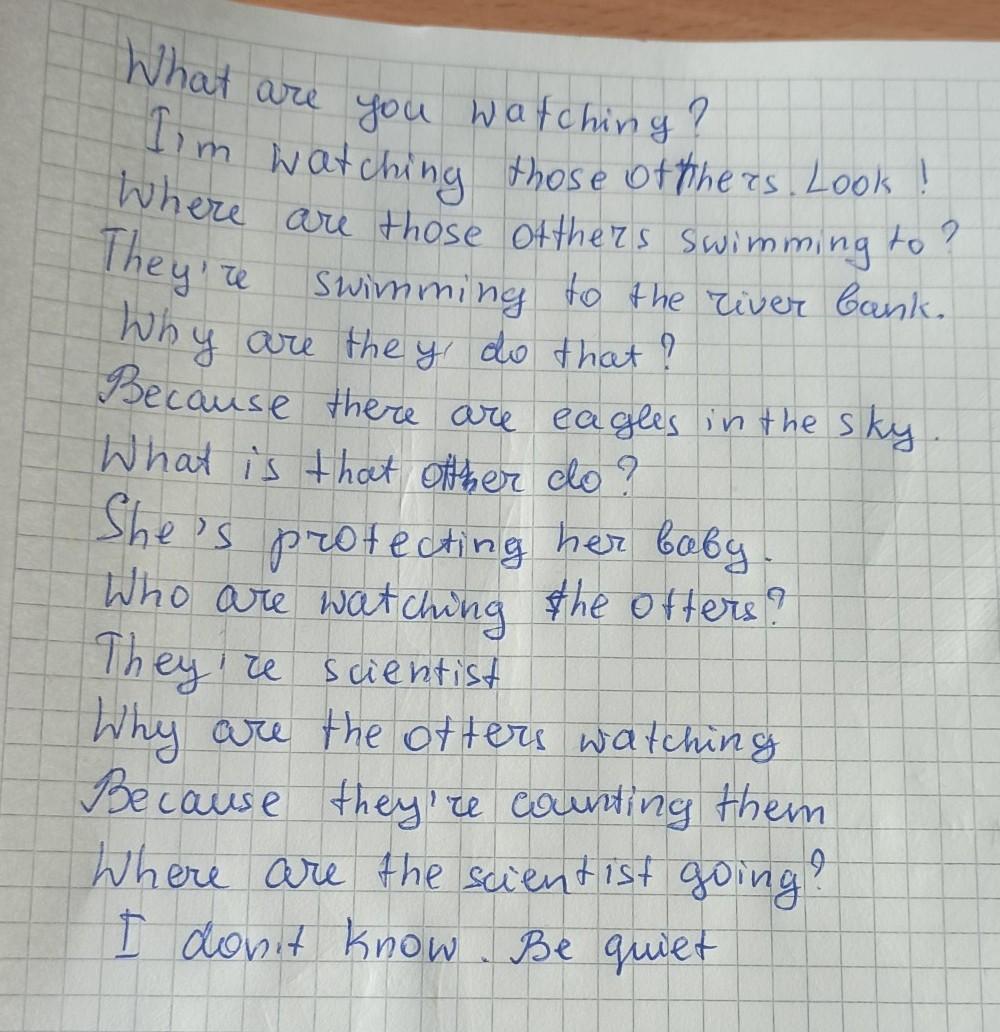 What are you watching?
I'm watching those otthers. Look!
Where are those otthers swimming to?
They're swimming to the river bank.
Why are they do that?
Because there are eagles in the sky.
What is that otther do?
She's protecting her baby.
Who are watching the otters?
They're scientist
Why are the otters watching
Because they're counting them
Where are the scientist going?
I don't know. Be quiet